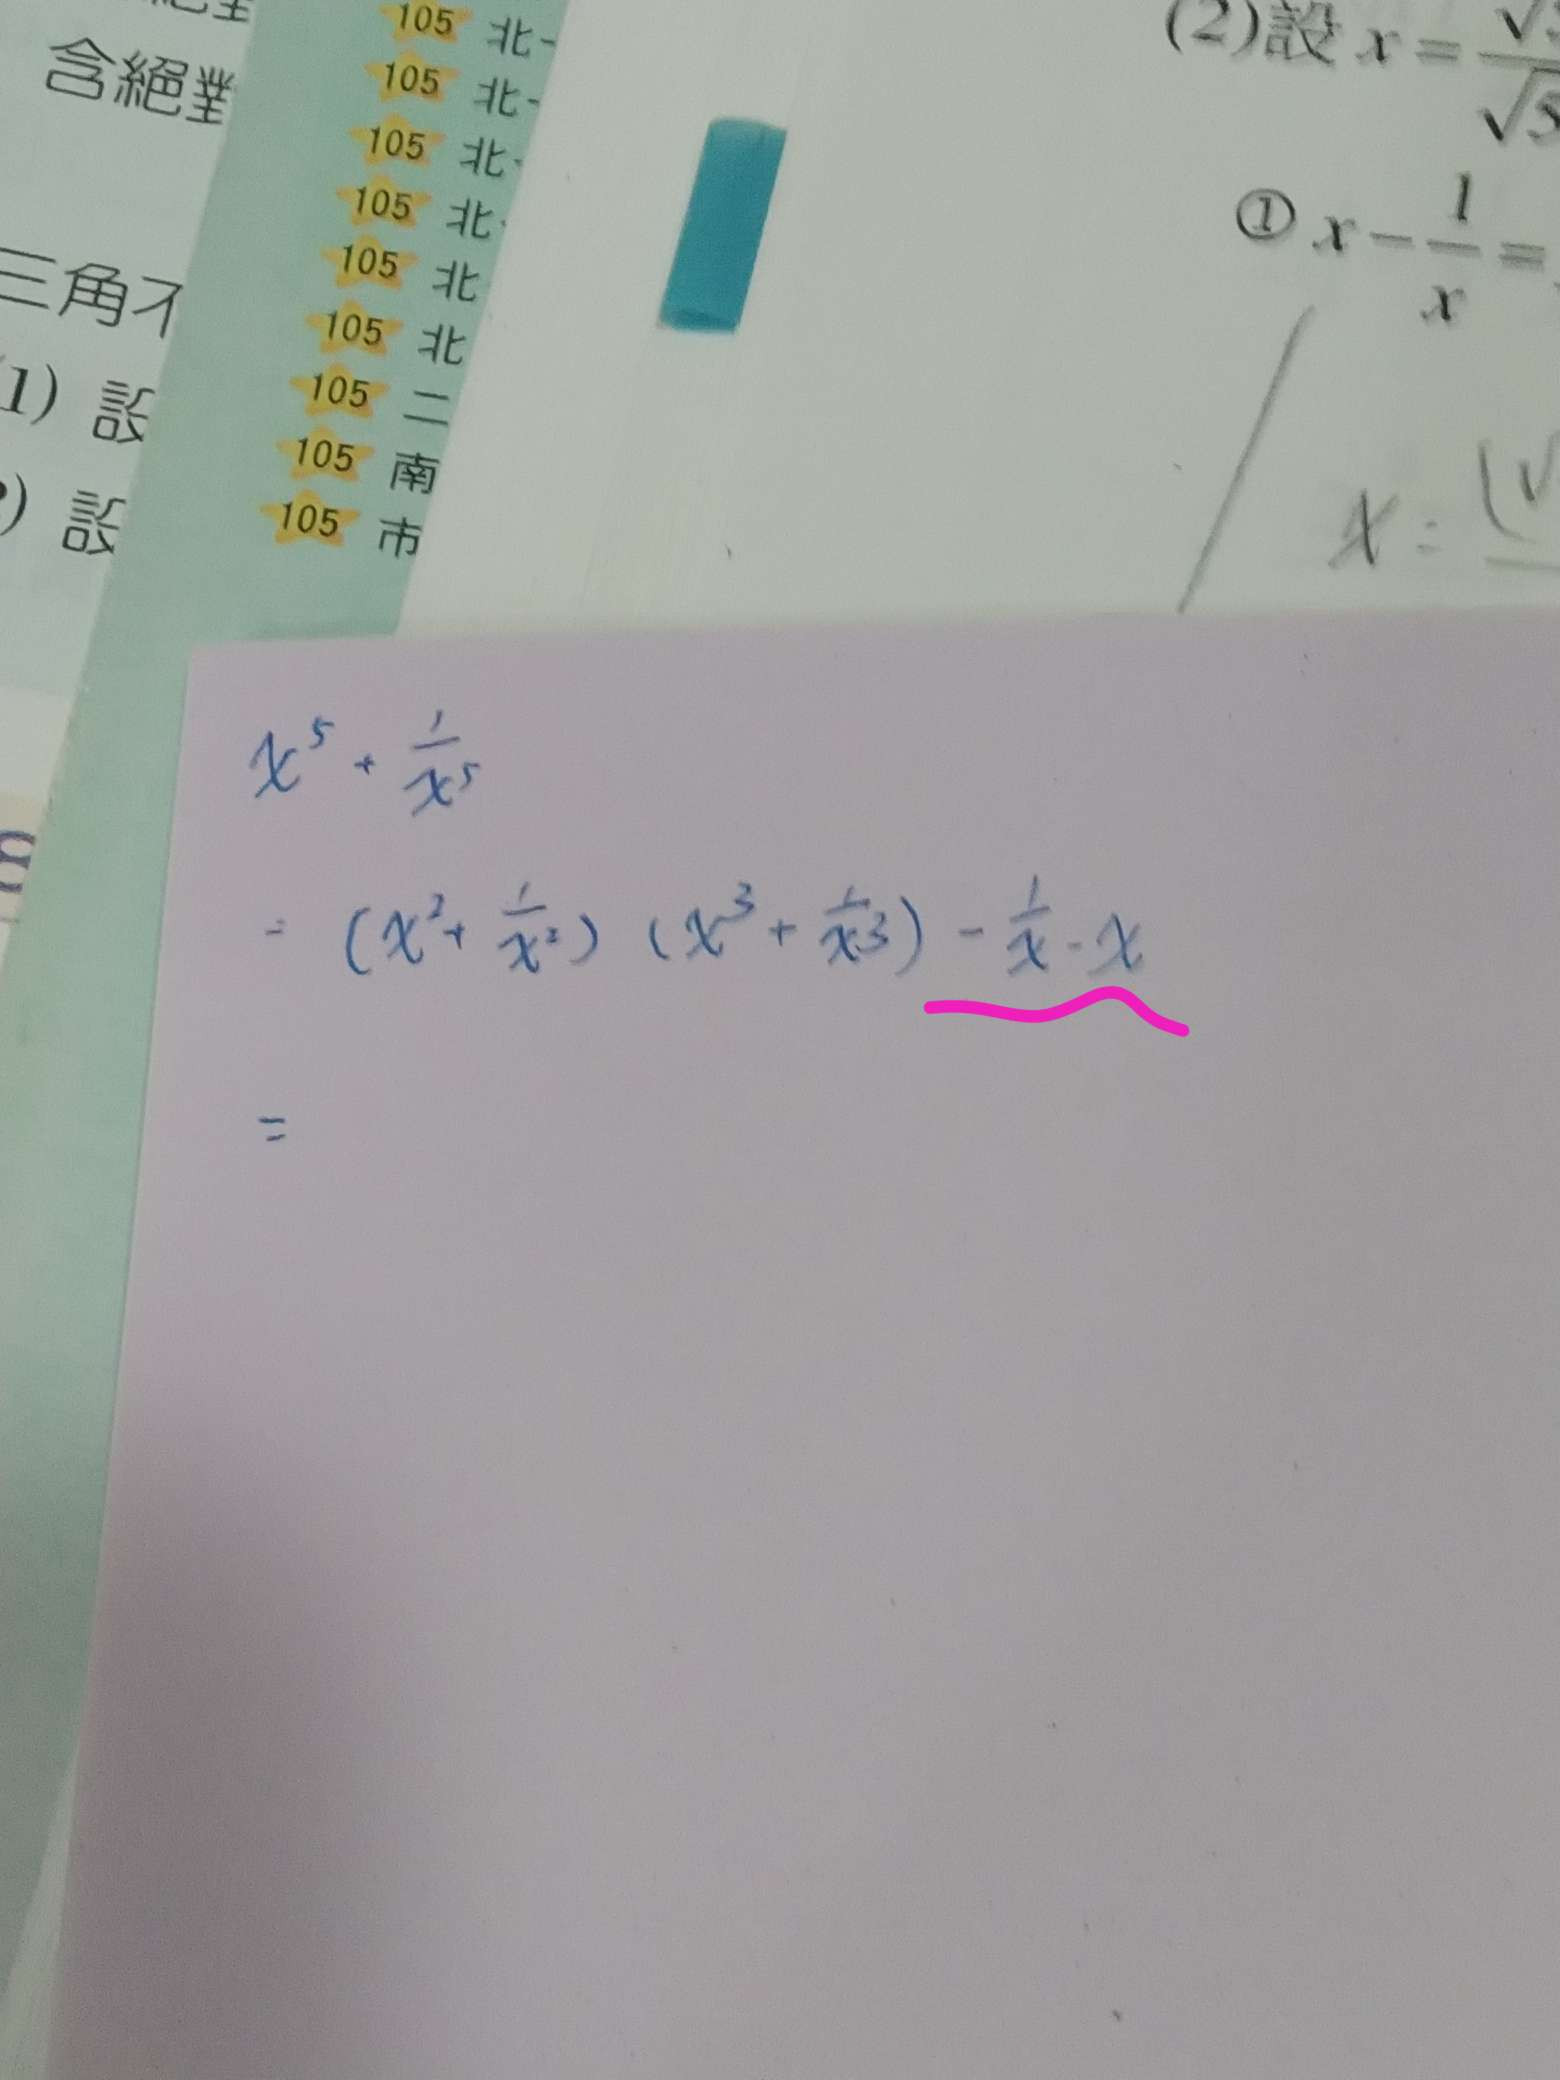 含絕對
三角不
(1) 設
) 設
105 北一
105 北一
105 北
105 北
105 北
105 北
105 二
105 南
105 市
(2)設 x = √5/√5
① x − 1/x =
x = (√
8
x⁵ + 1/x⁵
= (x² + 1/x²) (x³ + 1/x³) − 1/x − x
=